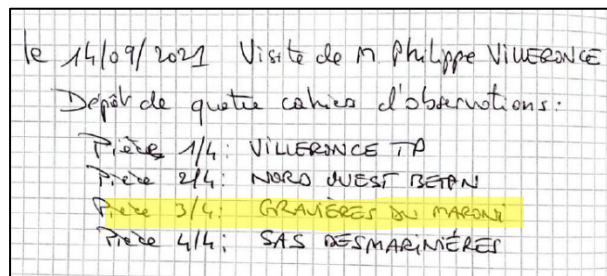 le 14/09/2021 Visite de M Philippe VILLERONCE
Dépôt de quatre cahiers d'observations:
Pièce 1/4: VILLERONCE TP
Pièce 2/4: NORD OUEST BETON
Pièce 3/4: GRAVIÈRES DU MARONI
Pièce 4/4: SAS DESMARINIÉRES